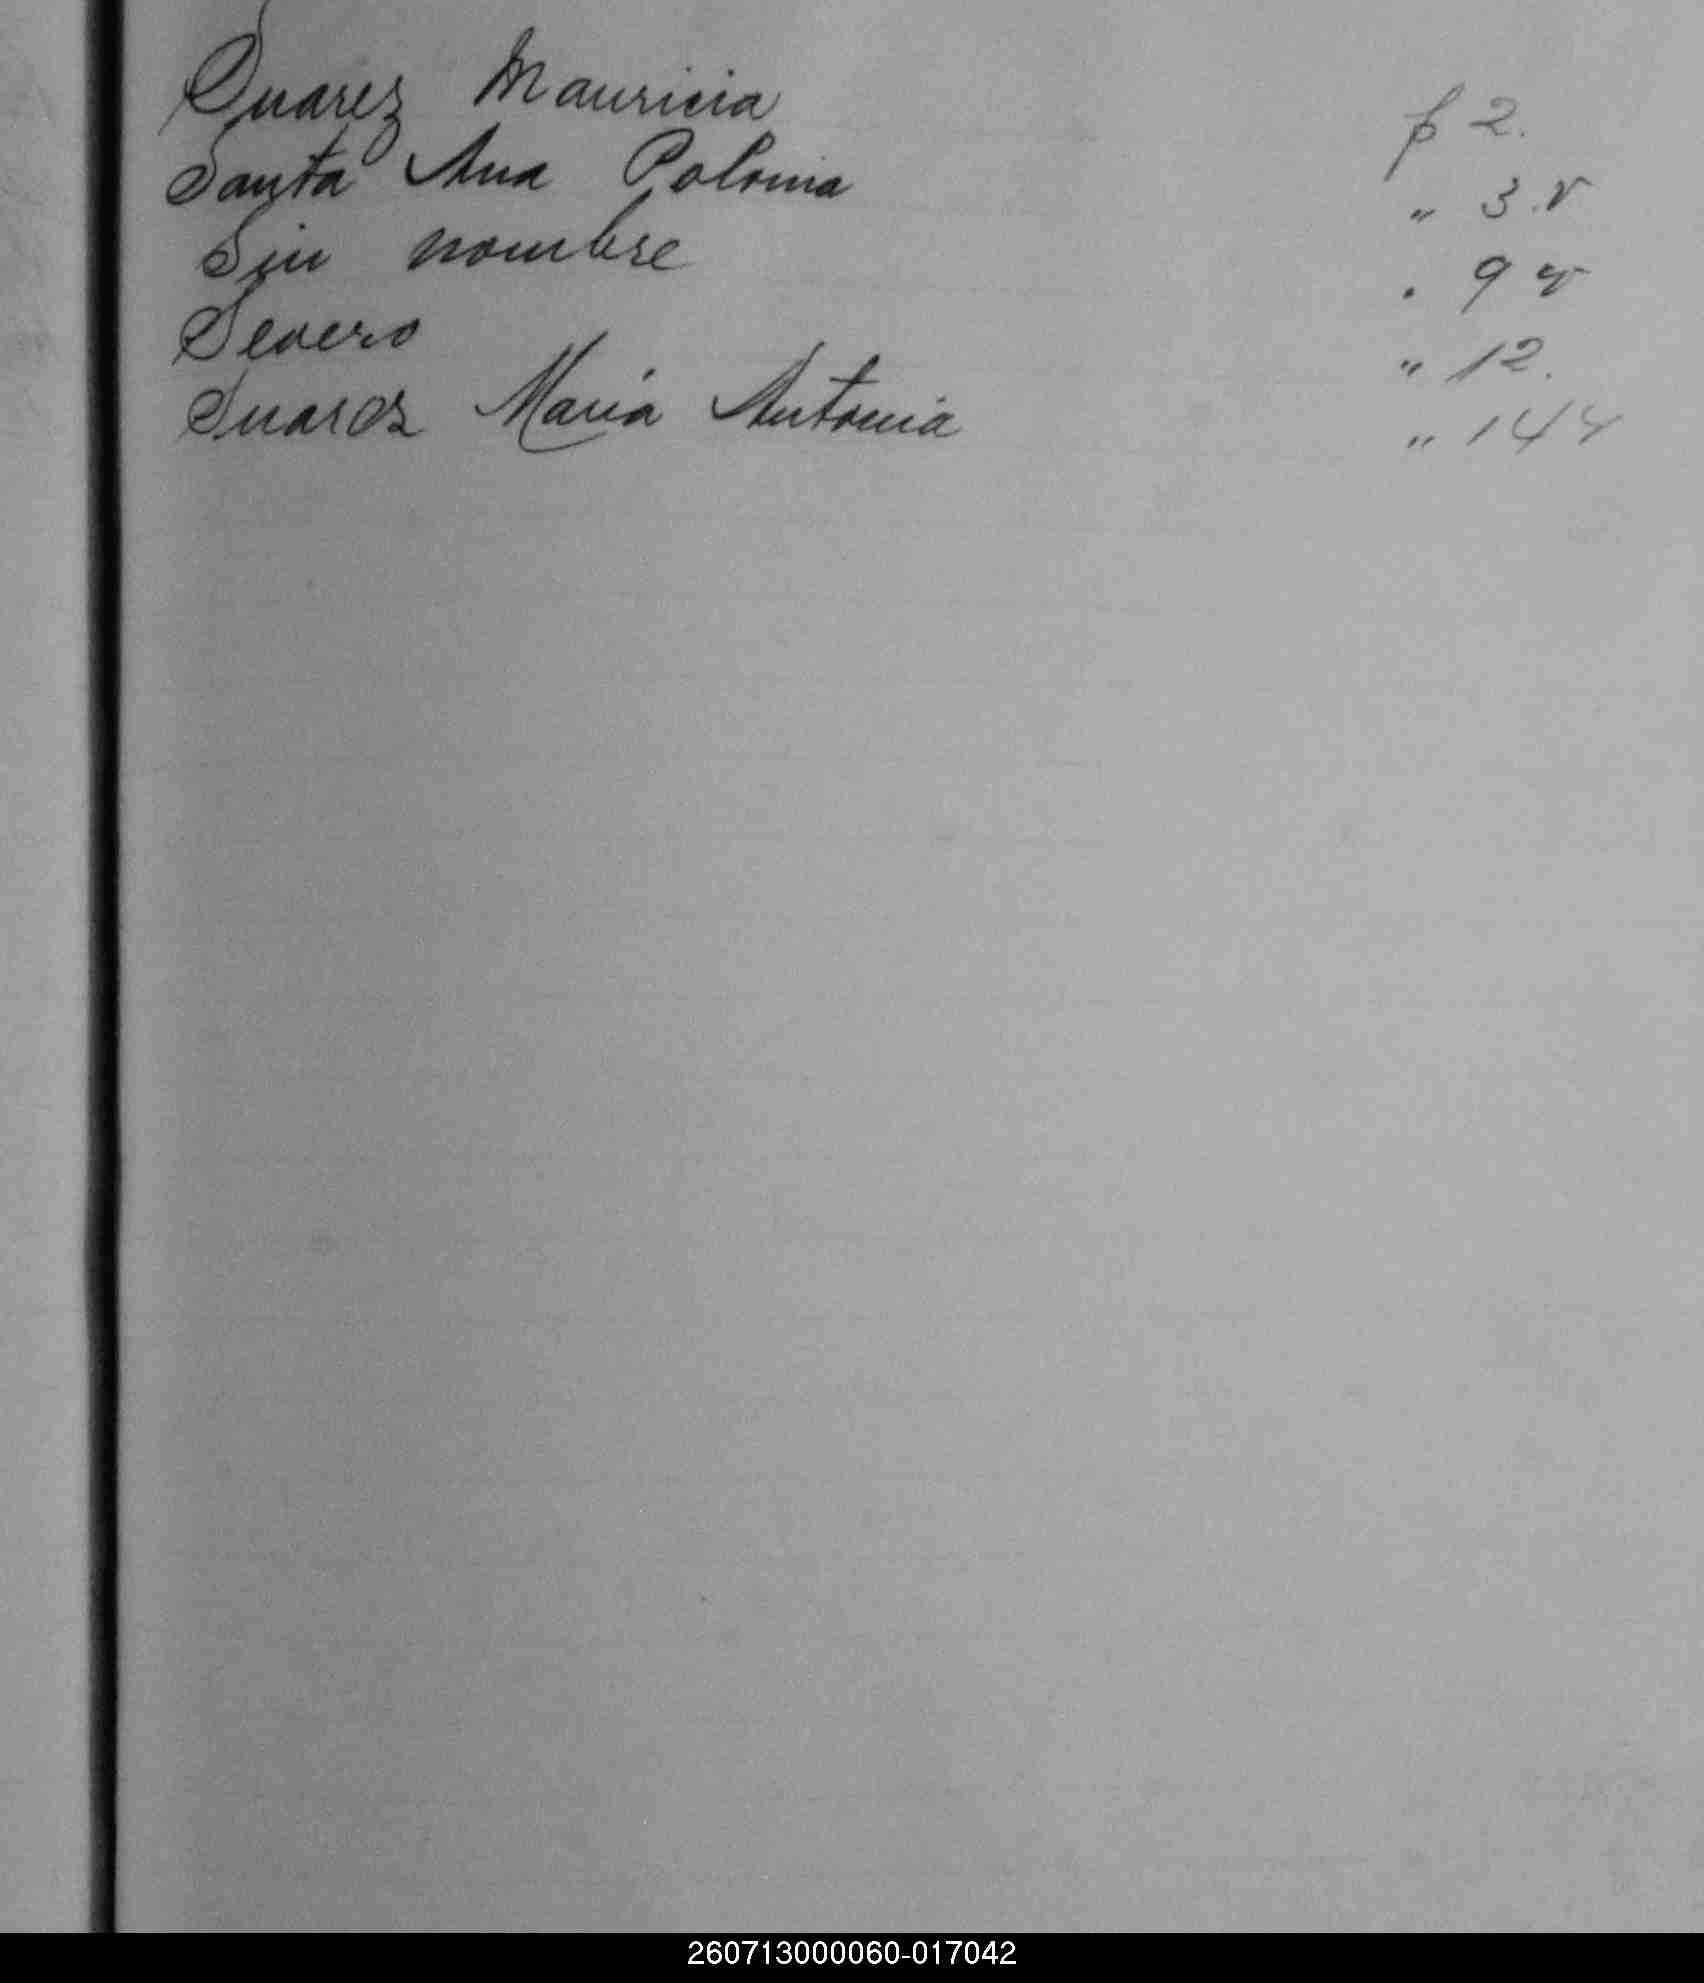 Suarez Mauricia f 2.
Santa Ana Polonia " 3.v
Sin nombre . 9 v
Severo " 12.
Suarez María Antonia " 14 v
260713000060-017042